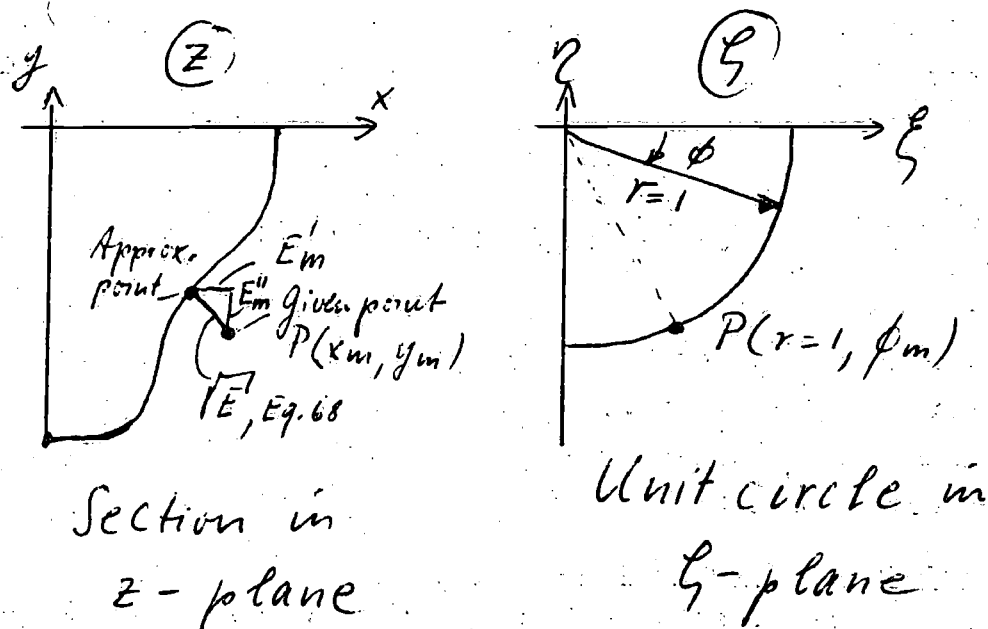 y
z
x
Approx.
point
E'm
E"m
Given point
P(xm, ym)
√E, Eq. 68
Section in
z - plane
η
ζ
ξ
φ
r=1
P(r=1, φm)
Unit circle in
ζ - plane